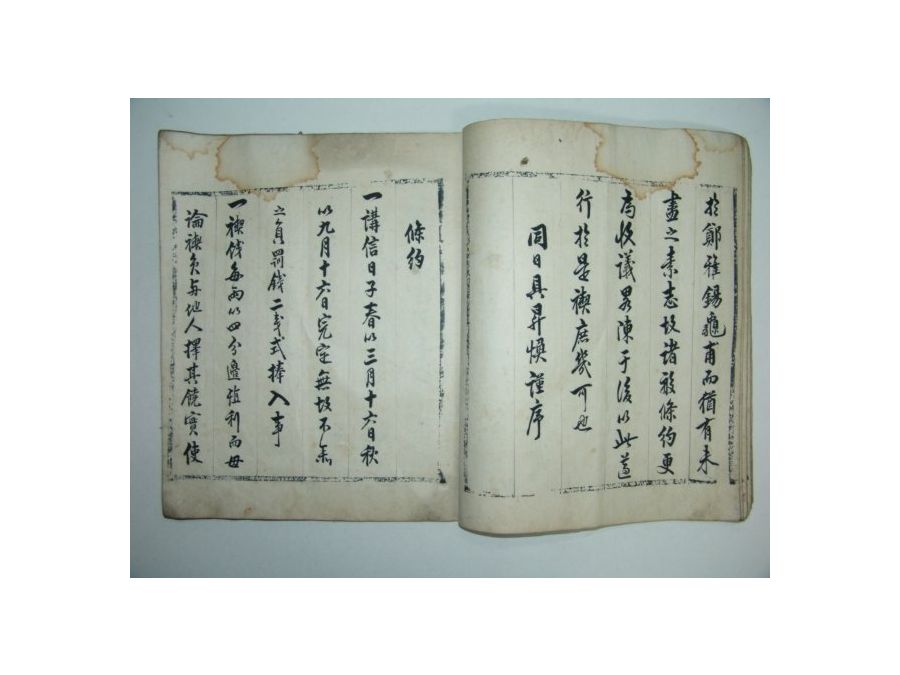 於鄭雅錫龜甫而猶有未
盡之素志故諸般條約更
爲收議畧陳于後以此遵
行於是禊庶幾可也
同日具昇煥謹序
條約
一講信日子春以三月十六日秋
以九月十六日完定無故不參
之員罰錢二戔式捧入事
一禊錢每兩以四分邊殖利而毋
論禊員与他人擇其饒實使